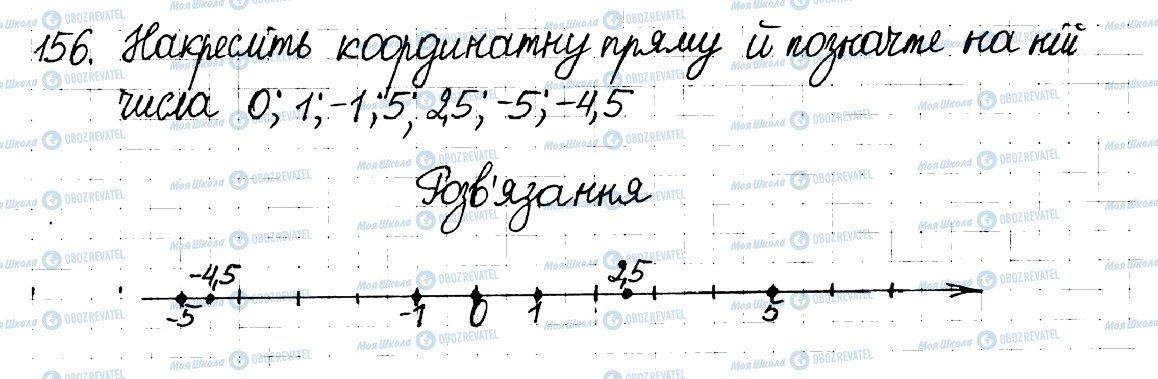 156. Накресліть координатну пряму й позначте на ній
числа 0; 1; -1; 5; 2,5; -5; -4,5
Розв'язання
-4,5 2,5
-5 -1 0 1 5
МояШкола OBOZREVATEL